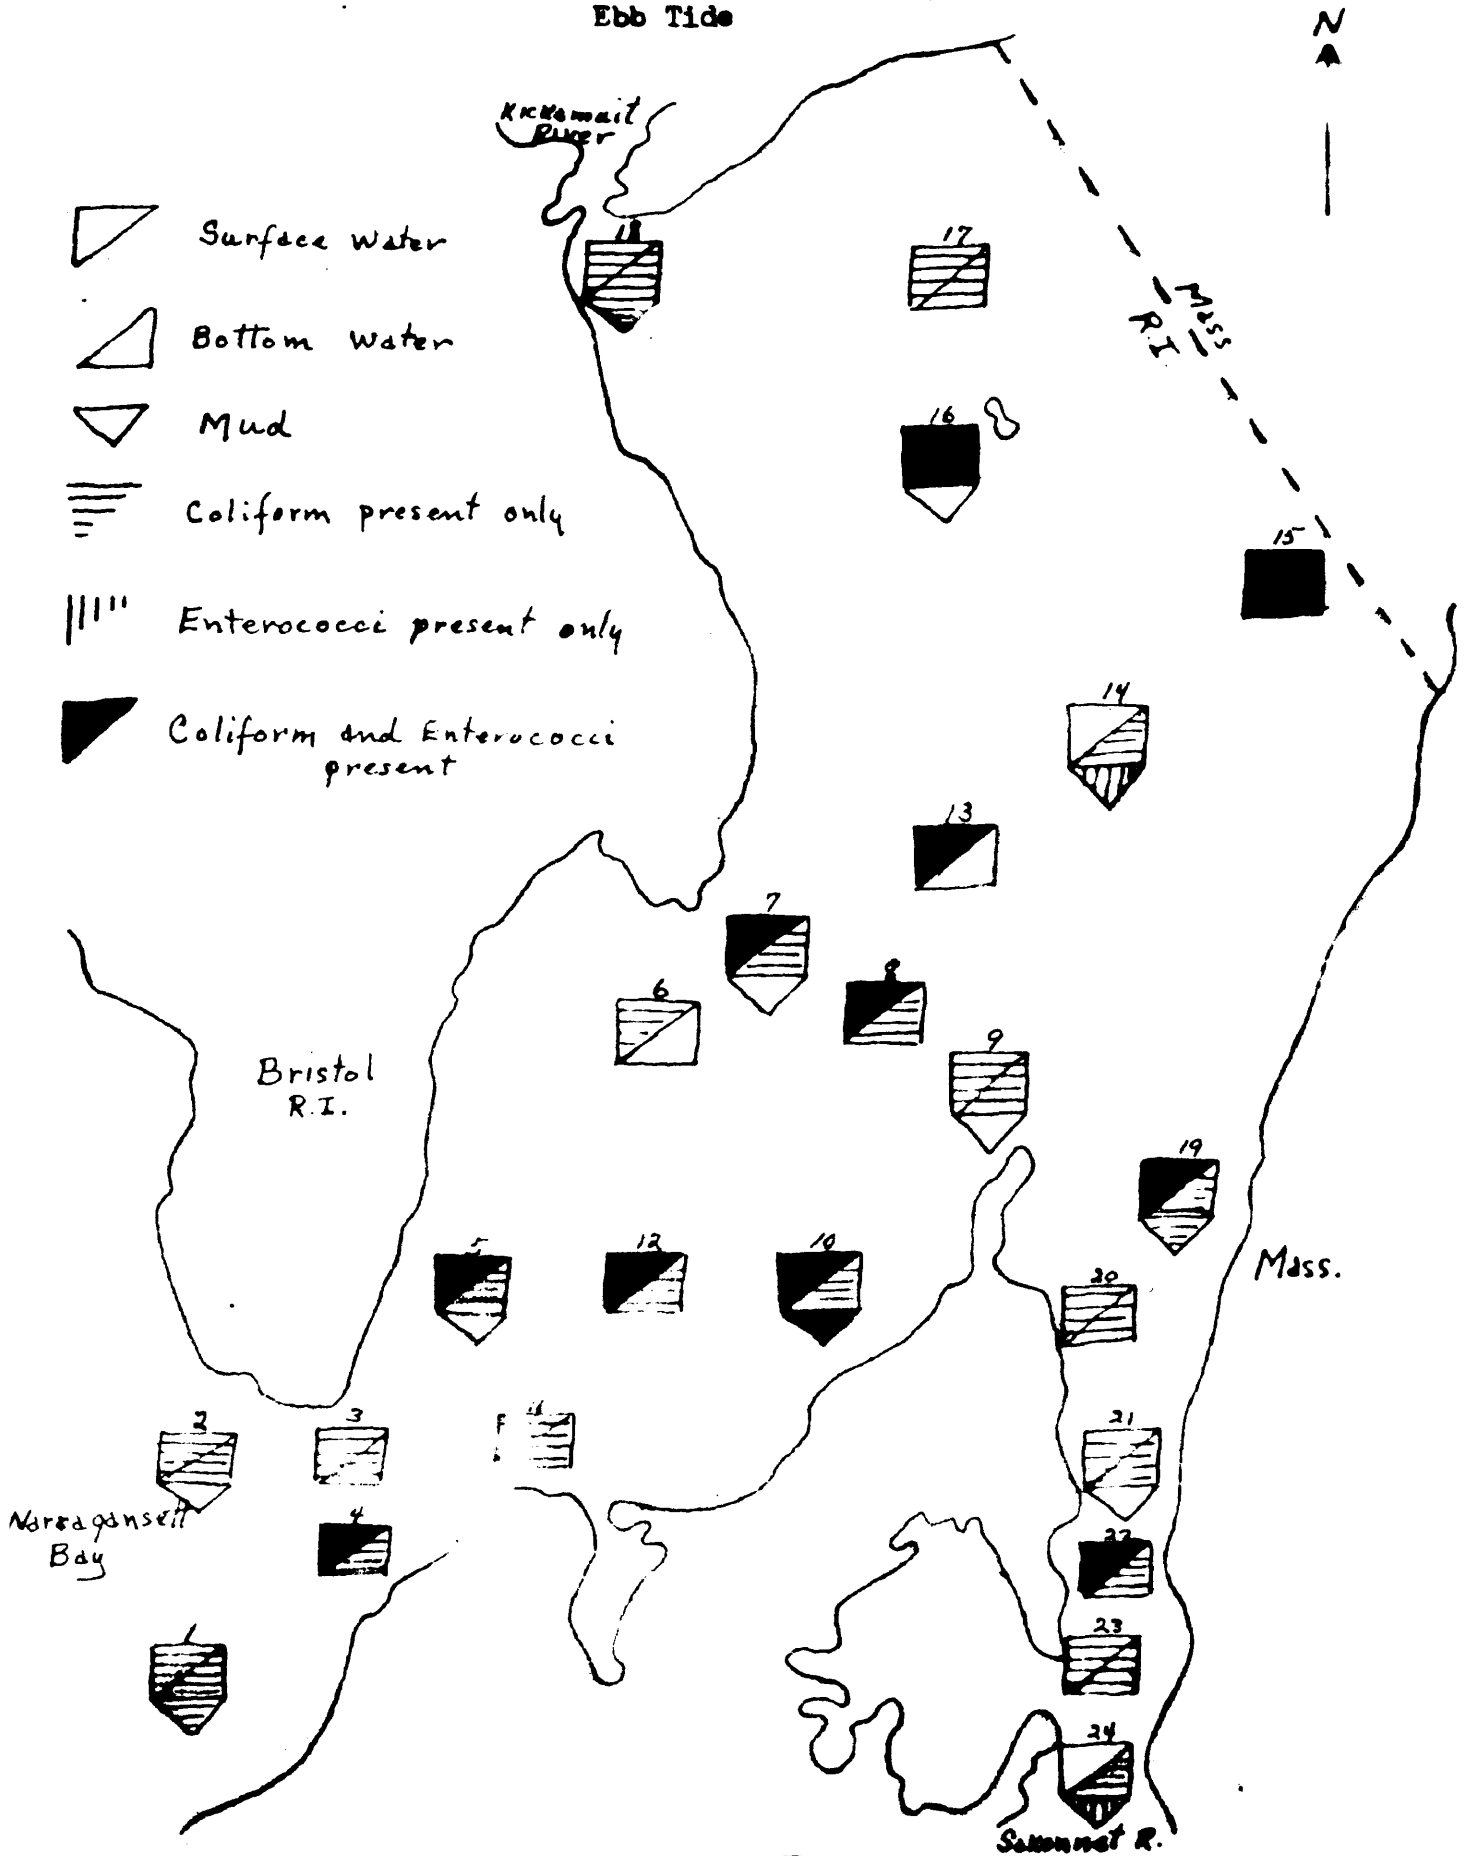 Ebb Tide
N
Kickamuit
River
Surface water
Bottom water
Mud
Coliform present only
Enterococci present only
Coliform and Enterococci
present
18
17
Mass
R.I.
16
15
14
13
7
8
6
9
Bristol
R.I.
19
5
12
10
Mass.
20
2
3
11
21
Narragansett
Bay
4
22
1
23
24
Sakonnet R.